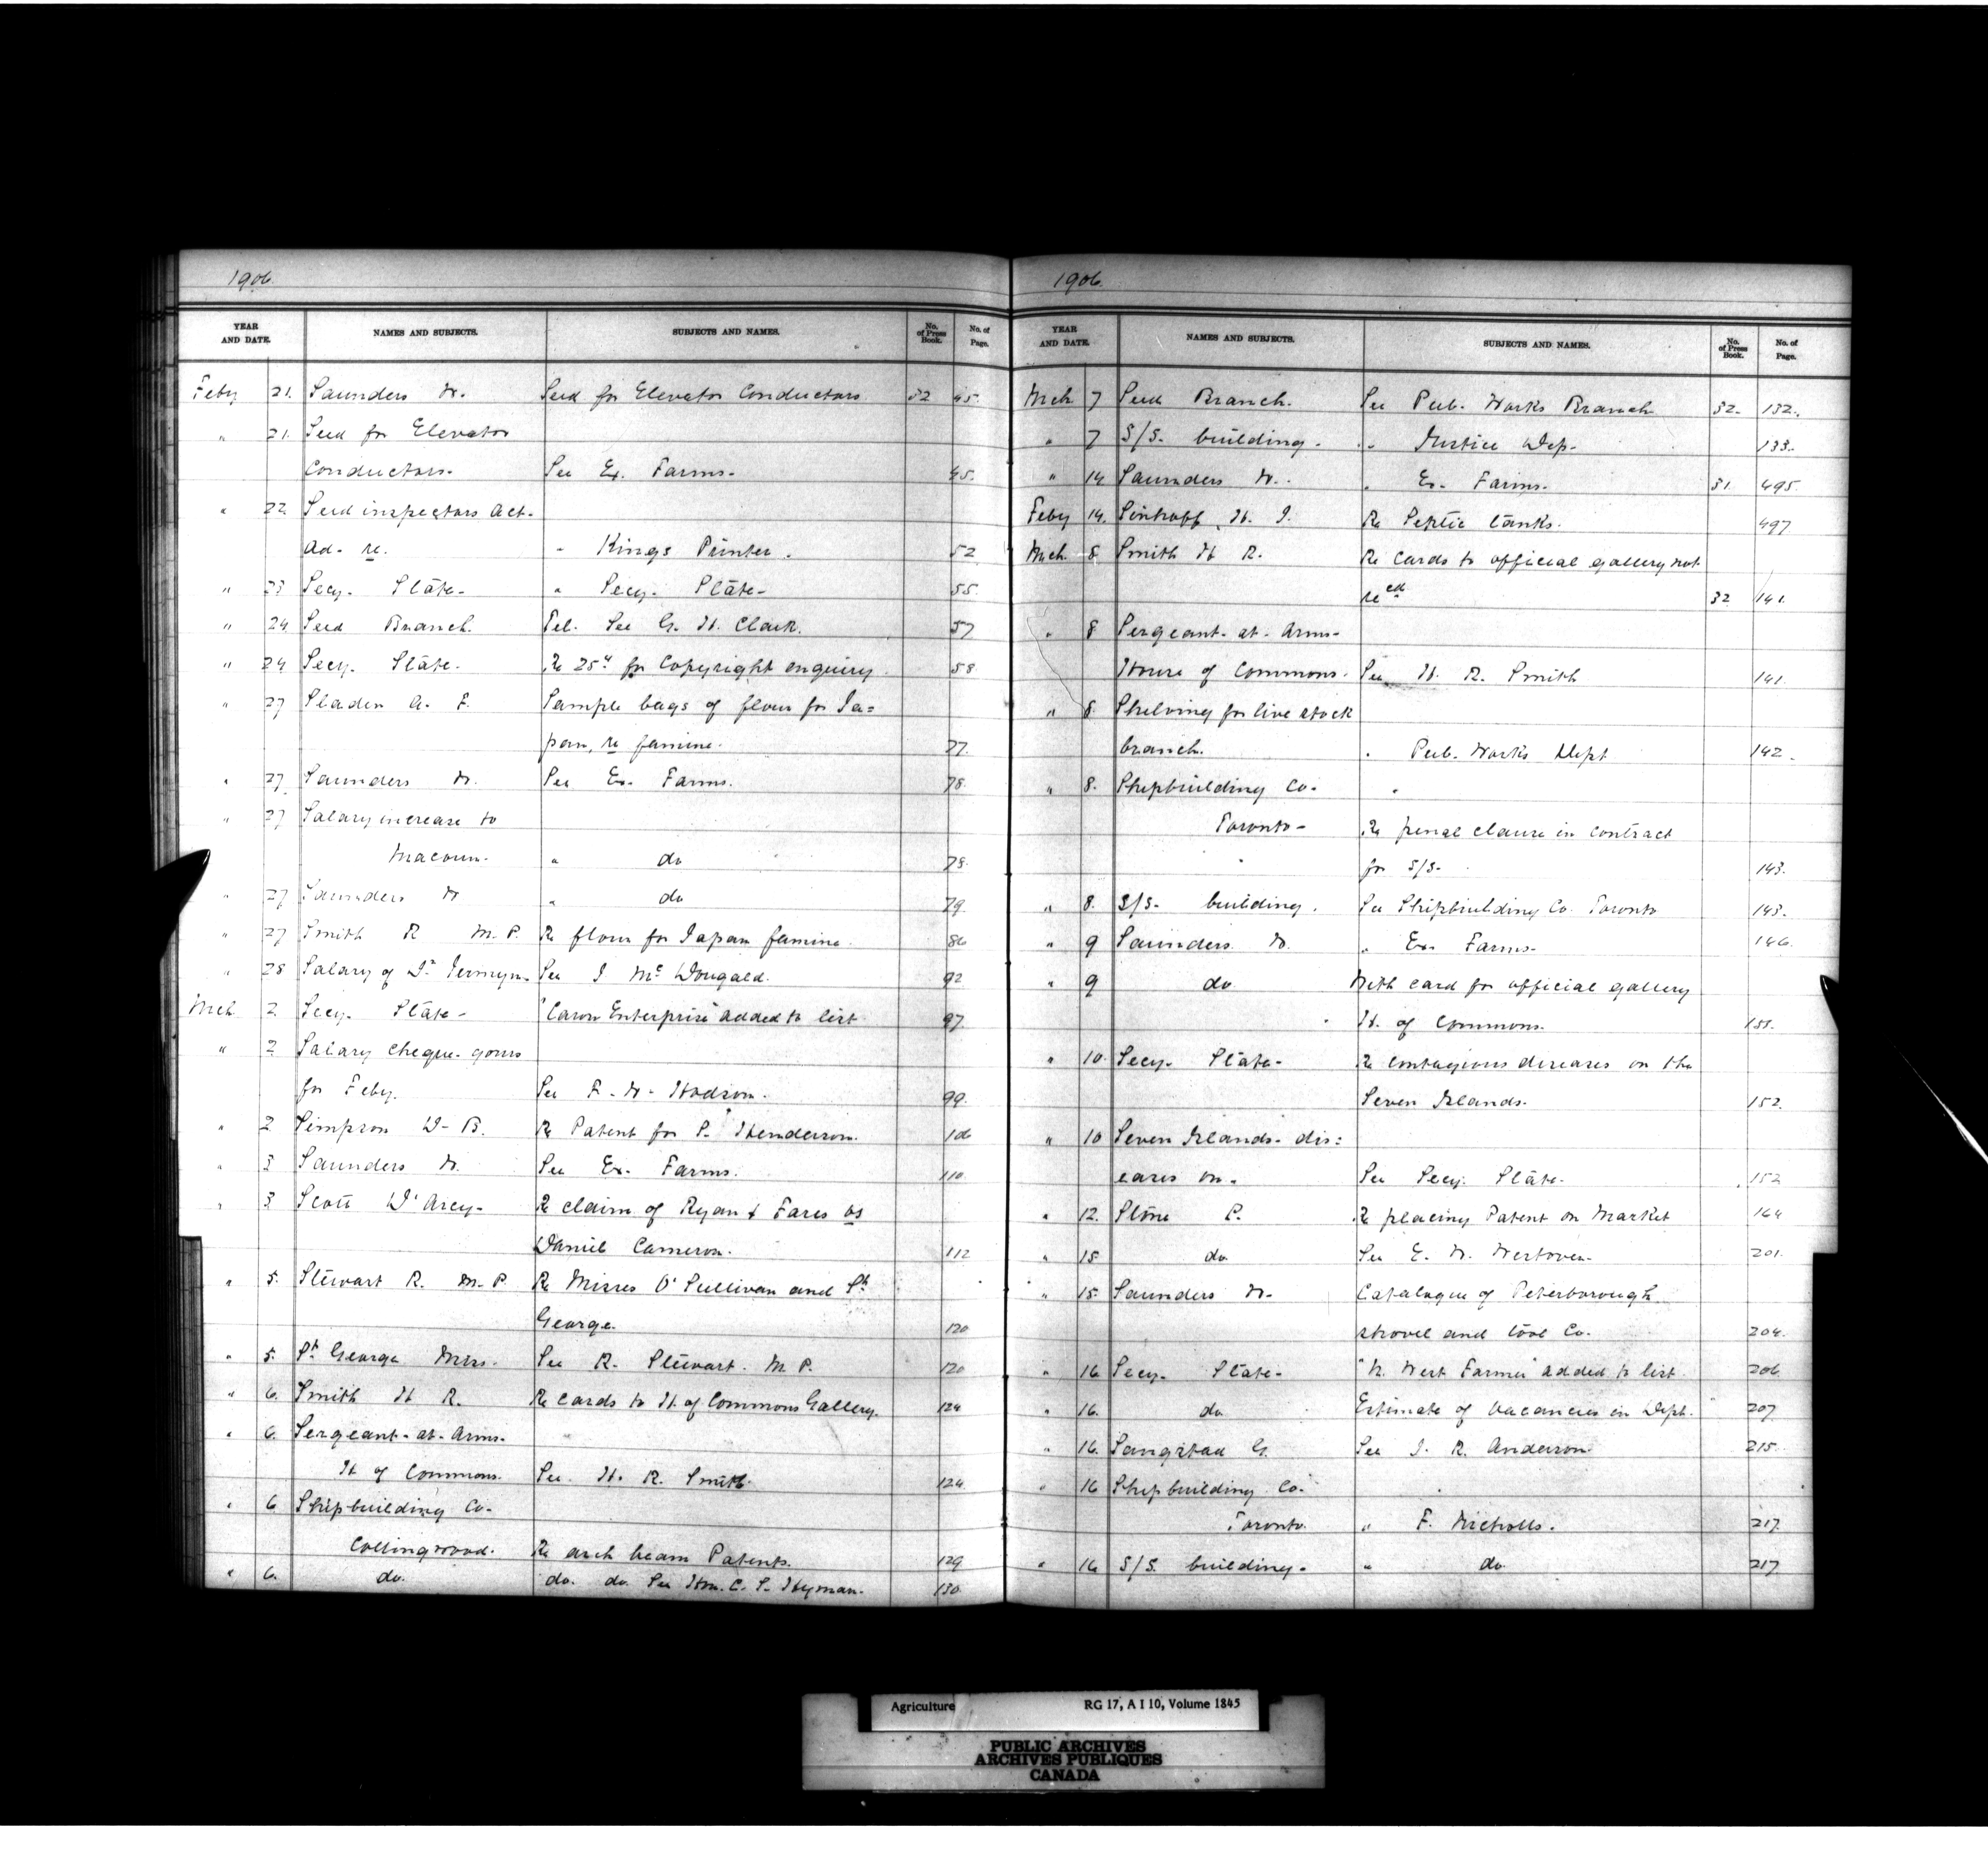 1906.
YEAR AND DATE. NAMES AND SUBJECTS. SUBJECTS AND NAMES. No. of Press Book. No. of Page.
Feby 21. Saunders W. Seed for Elevator Conductors 32 45.
" 21. Seed for Elevator
Conductors. See Ex. Farms. 45.
" 22. Seed inspectors Act.
Ad. re. " Kings Printer. 52
" 23 Secy. State. " Secy. State. 55.
" 24. Seed Branch. Tel. See G. H. Clark. 57
" 24 Secy. State. Re 25¢ for Copyright enquiry. 58
" 27 Sladen A. F. Sample bags of flour for Ja=
pan, re famine. 77.
" 27. Saunders W. See Ex. Farms. 78.
" 27 Salary increase to
Macoun. " do 78.
" 27 Saunders W " do 79.
" 27 Smith R M.P. Re flour for Japan famine. 86
" 28 Salary of Dr Jermyn. See J McDougald. 92
Mch 2 Secy. State. "Caron Enterprise" added to list 97
" 2 Salary cheque. yours
for Feby. See F. W. Hodson. 99.
" 2 Simpson D. B. Re Patent for P. Henderson. 106
" 3 Saunders W. See Ex. Farms. 110
" 3 Scott D'Arcy. Re claim of Ryan & Fares vs
Daniel Cameron. 112
" 5. Stewart R. M.P. Re Misses O'Sullivan and St
George. 120
" 5. St George Miss. See R. Stewart. M.P. 120
" 6. Smith H R. Re cards to H. of Commons Gallery. 124
" 6. Sergeant-at-Arms.
H of Commons. See H. R. Smith. 124
" 6 Shipbuilding Co.
Collingwood. Re arch beam Patents. 129
" 6. do. do. do. See Hon. C. S. Hyman. 130
1906.
YEAR AND DATE. NAMES AND SUBJECTS. SUBJECTS AND NAMES. No. of Press Book. No. of Page.
Mch 7 Seed Branch. See Pub. Works Branch 32. 132.
" 7 S/S. building. " Justice Dep. 133.
" 14 Saunders W. " Ex. Farms. 31. 495.
Feby 14. H. J. Re Septic tanks. 497
Mch. 8 Smith H R. Re cards to official gallery not
recd 32 141.
" 8 Sergeant-at-Arms.
House of Commons. See H. R. Smith 141.
" 8. Shelving for live stock
branch. " Pub. Works Dept 142.
" 8. Shipbuilding Co. "
Toronto. Re penal clause in contract
for S/S. 143.
" 8. S/S. building. See Shipbuilding Co. Toronto 143.
" 9 Saunders W. " Ex. Farms. 146.
" 9 do With card for official gallery
H. of Commons. 151.
" 10. Secy. State. Re contagious diseases on the
Seven Islands. 152.
" 10 Seven Islands. dis=
eases on. See Secy. State. 152
" 12. Stone P. Re placing Patent on Market 164
" 15 do. See E. W. 201.
" 15. Saunders W. Catalogue of Peterborough
shovel and tool Co. 204.
" 16 Secy. State. "N. West Farmer" added to list. 206
" 16. do Estimate of vacancies in Dept. 207
" 16. Sangstad G. See J. R. Anderson. 215.
" 16 Shipbuilding Co.
Toronto. " F. Nicholls. 217.
" 16 S/S. building. " do. 217
Agriculture RG 17, A I 10, Volume 1845
PUBLIC ARCHIVES
ARCHIVES PUBLIQUES
CANADA